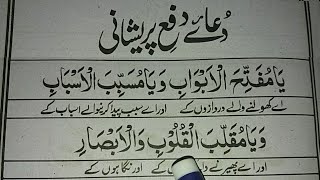 دُعائے دفعِ پریشانی
يَا مُفَتِّحَ الْاَبْوَابِ وَيَا مُسَبِّبَ الْاَسْبَابِ
اے کھولنے والے دروازوں کے اور اے سبب پیدا کرنیوالے اسباب کے
وَيَا مُقَلِّبَ الْقُلُوْبِ وَالْاَبْصَارِ
اور اے پھیرنے کے اور نگاہوں کے